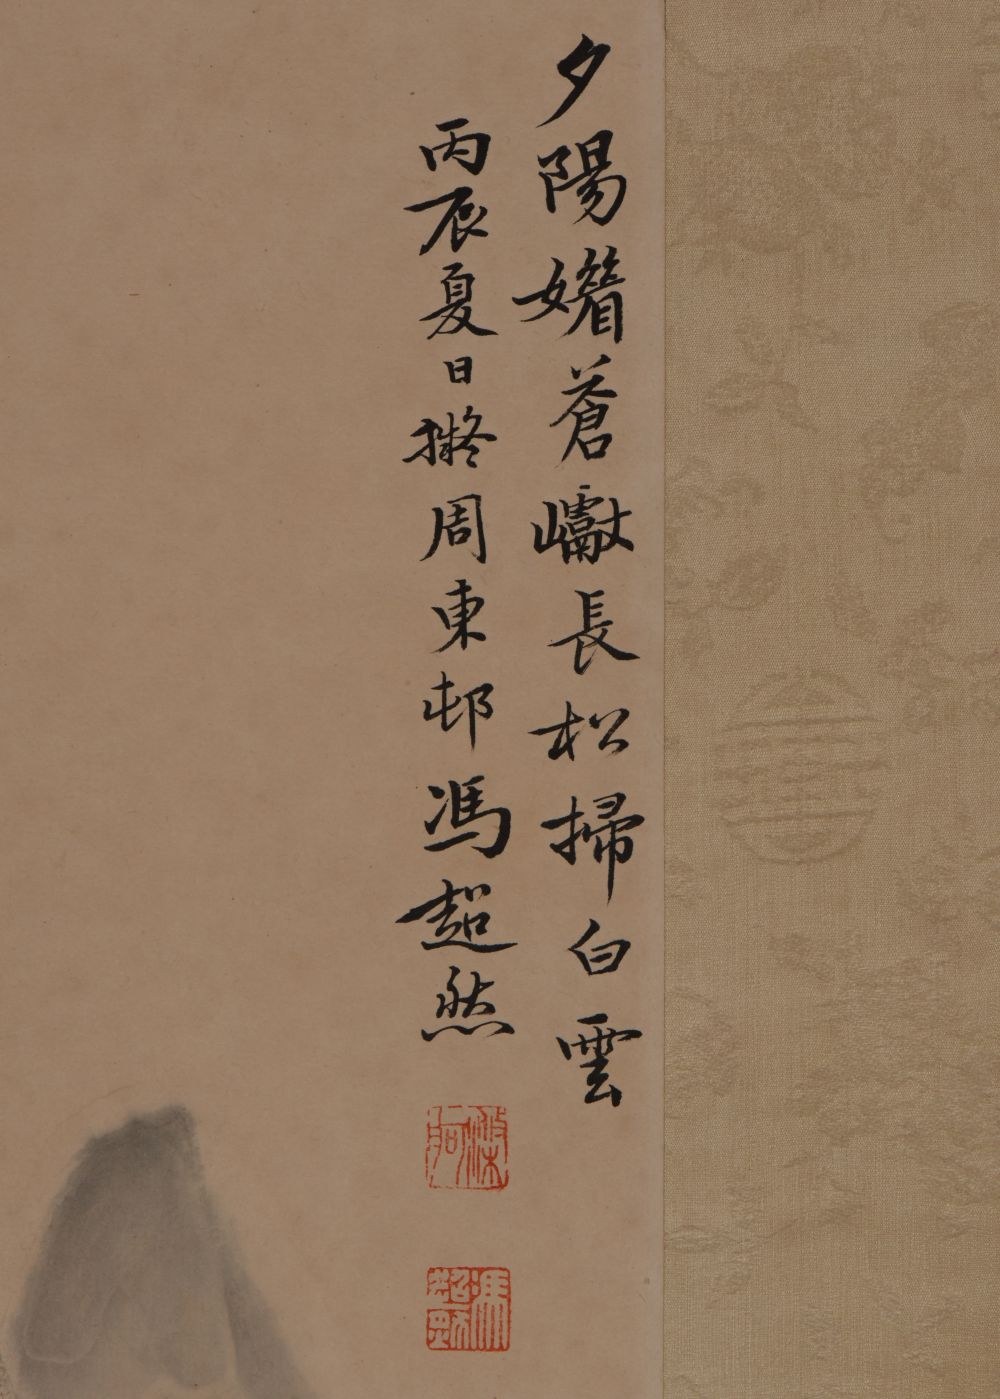 夕陽嬾蒼巘長松掃白雲
丙辰夏日擬周東邨馮超然
滌舸
馮超然